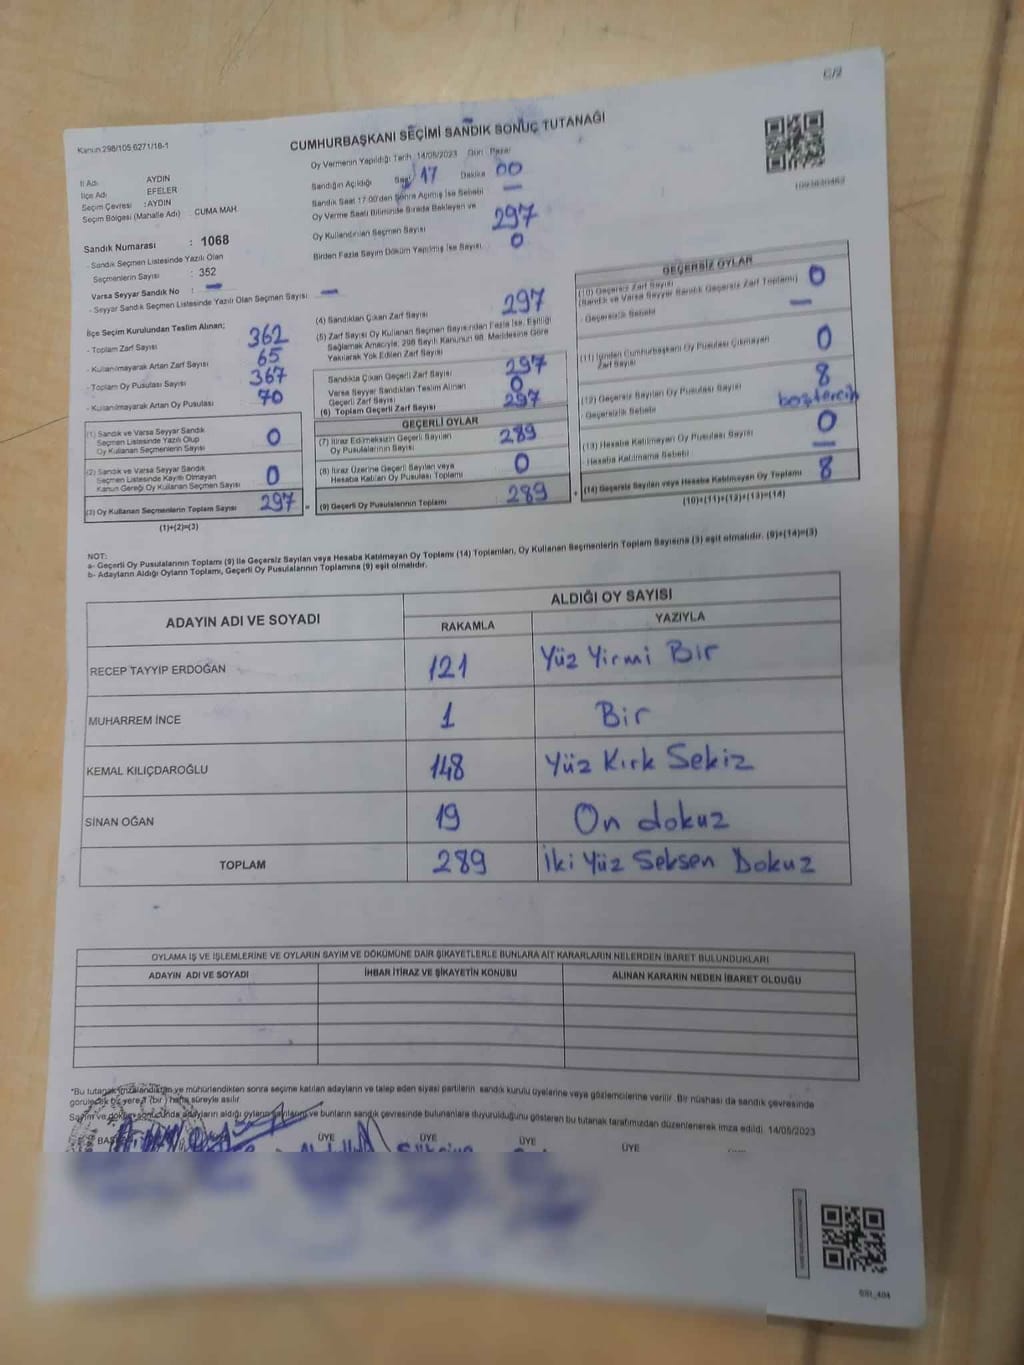 C/2
Kanun:298/105 6271/18-1
CUMHURBAŞKANI SEÇİMİ SANDIK SONUÇ TUTANAĞI
Oy Vermenin Yapıldığı Tarih 14/05/2023 Gün Pazar
İl Adı AYDIN
İlçe Adı EFELER
Seçim Çevresi : AYDIN
Seçim Bölgesi (Mahalle Adı) : CUMA MAH.
Sandığın Açıldığı Saat 17 Dakika 00
Sandık Saat 17:00'den Sonra Açılmış İse Sebebi —
Oy Verme Saati Bitiminde Sırada Bekleyen ve
Oy Kullandırılan Seçmen Sayısı 297
Birden Fazla Sayım Döküm Yapılmış İse Sayısı 0
Sandık Numarası : 1068
- Sandık Seçmen Listesinde Yazılı Olan
Seçmenlerin Sayısı : 352
Varsa Seyyar Sandık No : —
- Seyyar Sandık Seçmen Listesinde Yazılı Olan Seçmen Sayısı : —
İlçe Seçim Kurulundan Teslim Alınan;
- Toplam Zarf Sayısı 362
- Kullanılmayarak Artan Zarf Sayısı 65
- Toplam Oy Pusulası Sayısı 367
- Kullanılmayarak Artan Oy Pusulası 70
(1) Sandık ve Varsa Seyyar Sandık
Seçmen Listesinde Yazılı Olup
Oy Kullanan Seçmenlerin Sayısı 0
(2) Sandık ve Varsa Seyyar Sandık
Seçmen Listesinde Kayıtlı Olmayan
Kanun Gereği Oy Kullanan Seçmen Sayısı 0
(3) Oy Kullanan Seçmenlerin Toplam Sayısı 297 =
(1)+(2)=(3)
(4) Sandıktan Çıkan Zarf Sayısı 297
(5) Zarf Sayısı Oy Kullanan Seçmen Sayısından Fazla İse, Eşitliği
Sağlamak Amacıyla; 298 Sayılı Kanunun 98. Maddesine Göre
Yakılarak Yok Edilen Zarf Sayısı
Sandıkta Çıkan Geçerli Zarf Sayısı 297
Varsa Seyyar Sandıktan Teslim Alınan
Geçerli Zarf Sayısı 0
(6) Toplam Geçerli Zarf Sayısı 297
GEÇERLİ OYLAR
(7) İtiraz Edilmeksizin Geçerli Sayılan
Oy Pusulalarının Sayısı 289
(8) İtiraz Üzerine Geçerli Sayılan veya
Hesaba Katılan Oy Pusulası Toplamı 0
(9) Geçerli Oy Pusulalarının Toplamı 289 +
GEÇERSİZ OYLAR
(10) Geçersiz Zarf Sayısı
(Sandık ve Varsa Seyyar Sandık Geçersiz Zarf Toplamı) 0
- Geçersizlik Sebebi —
(11) İçinden Cumhurbaşkanı Oy Pusulası Çıkmayan
Zarf Sayısı 0
(12) Geçersiz Sayılan Oy Pusulası Sayısı 8
- Geçersizlik Sebebi boş tercih
(13) Hesaba Katılmayan Oy Pusulası Sayısı 0
- Hesaba Katılmama Sebebi —
(14) Geçersiz Sayılan veya Hesaba Katılmayan Oy Toplamı 8
(10)+(11)+(12)+(13)=(14)
NOT:
a- Geçerli Oy Pusulalarının Toplamı (9) ile Geçersiz Sayılan veya Hesaba Katılmayan Oy Toplamı (14) Toplamları, Oy Kullanan Seçmenlerin Toplam Sayısına (3) eşit olmalıdır. (9)+(14)=(3)
b- Adayların Aldığı Oyların Toplamı, Geçerli Oy Pusulalarının Toplamına (9) eşit olmalıdır.
ADAYIN ADI VE SOYADI ALDIĞI OY SAYISI
RAKAMLA YAZIYLA
RECEP TAYYİP ERDOĞAN 121 Yüz Yirmi Bir
MUHARREM İNCE 1 Bir
KEMAL KILIÇDAROĞLU 148 Yüz Kırk Sekiz
SİNAN OĞAN 19 On dokuz
TOPLAM 289 İki Yüz Seksen Dokuz
OYLAMA İŞ VE İŞLEMLERİNE VE OYLARIN SAYIM VE DÖKÜMÜNE DAİR ŞİKAYETLERLE BUNLARA AİT KARARLARIN NELERDEN İBARET BULUNDUKLARI
ADAYIN ADI VE SOYADI İHBAR İTİRAZ VE ŞİKAYETİN KONUSU ALINAN KARARIN NEDEN İBARET OLDUĞU
*Bu tutanak imzalandıktan ve mühürlendikten sonra seçime katılan adayların ve talep eden siyasi partilerin sandık kurulu üyelerine veya gözlemcilerine verilir. Bir nüshası da sandık çevresinde
görülecek bir yere 1 (bir) hafta süreyle asılır
Sayım ve döküm sonucunda adayların aldığı oyların sayılarını ve bunların sandık çevresinde bulunanlara duyurulduğunu gösteren bu tutanak tarafımızdan düzenlenerek imza edildi. 14/05/2023
ÜYE ÜYE ÜYE ÜYE